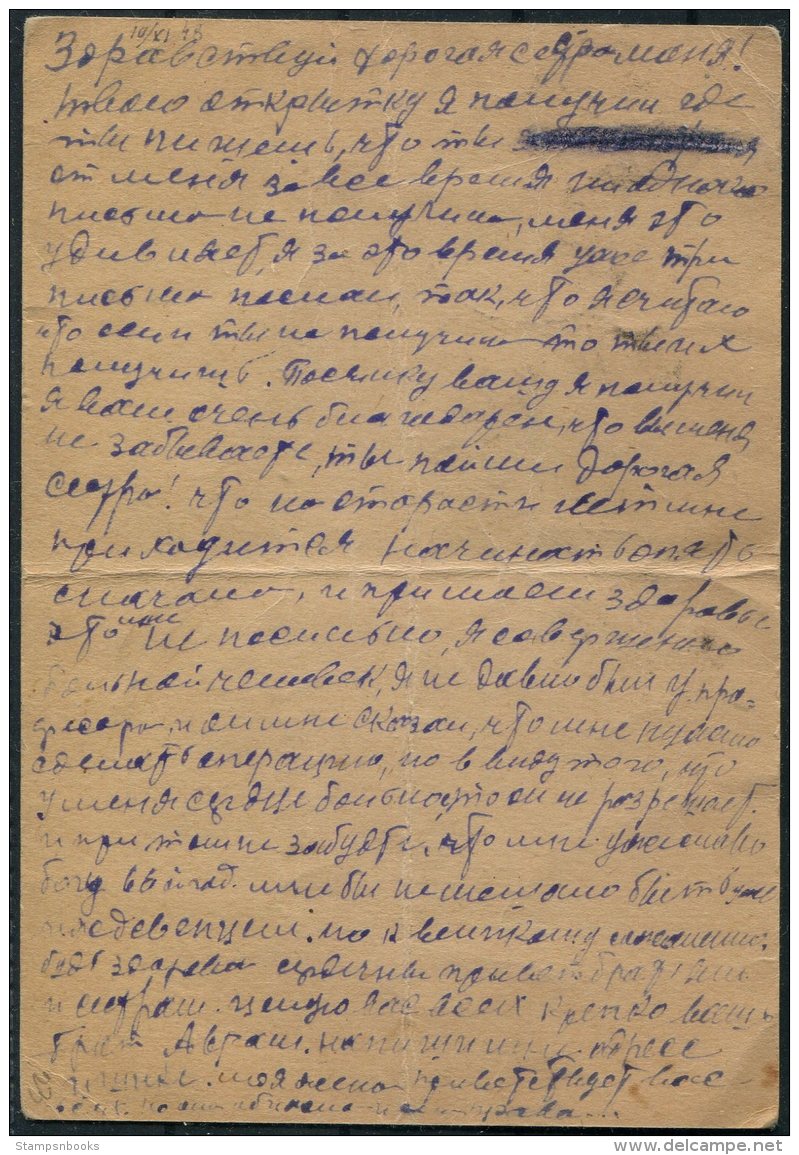 10/XI 45
Здравствуй дорогая сестра Маня!
Твою открытку я получил где
ты пишешь, что ты
от меня за все время ни одного
письма не получила, меня это
удивляет, я за это время уже три
письма послал, так, что я считаю
что если ты не получила то ты их
получишь. Посылку вашу я получил
я вам очень благодарен, что вы меня
не забываете, ты пойми дорогая
сестра! что на старости лет мне
приходится начинать опять
сначала, и при моем здоровье
это мне не посильно, я совершенно
больной человек, я не давно был у про-
фесора, и он мне сказал, что мне нужно
сделать операцию, но в виду того, что
у меня сердце больное то он не разрешает.
и при том не забудте, что мне уже слава
богу мне бы не мешало быть уже
но к великому сожалению.
будь здорова сердечный привет братьям
и сестрам. целую вас всех крепко ваш
брат Аврам. напиши мне адрес
моя жена приветствует вас
Stampsnbooks
delcampe.net